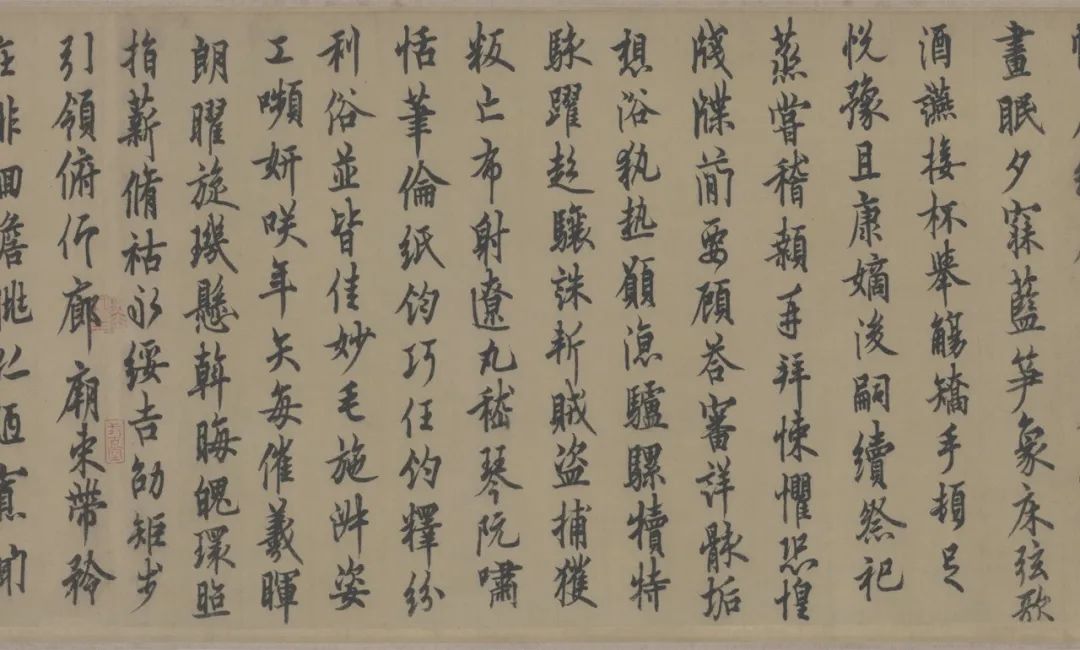 畫眠夕寐藍笋象床弦歌
酒讌接杯舉觴矯手頓足
悅豫且康嫡後嗣續祭祀
蒸嘗稽顙再拜悚懼恐惶
牋牒簡要顧荅審詳骸垢
想浴執熱願涼驢騾犢特
駭躍超驤誅斬賊盜捕獲
叛亡布射遼丸嵇琴阮嘯
恬筆倫紙鈞巧任釣釋紛
利俗並皆佳妙毛施淑姿
工嚬妍咲年矢每催羲暉
朗曜旋璣懸斡晦魄環照
指薪脩祜永綏吉劭矩步
引領俯仰廊廟束帶矜